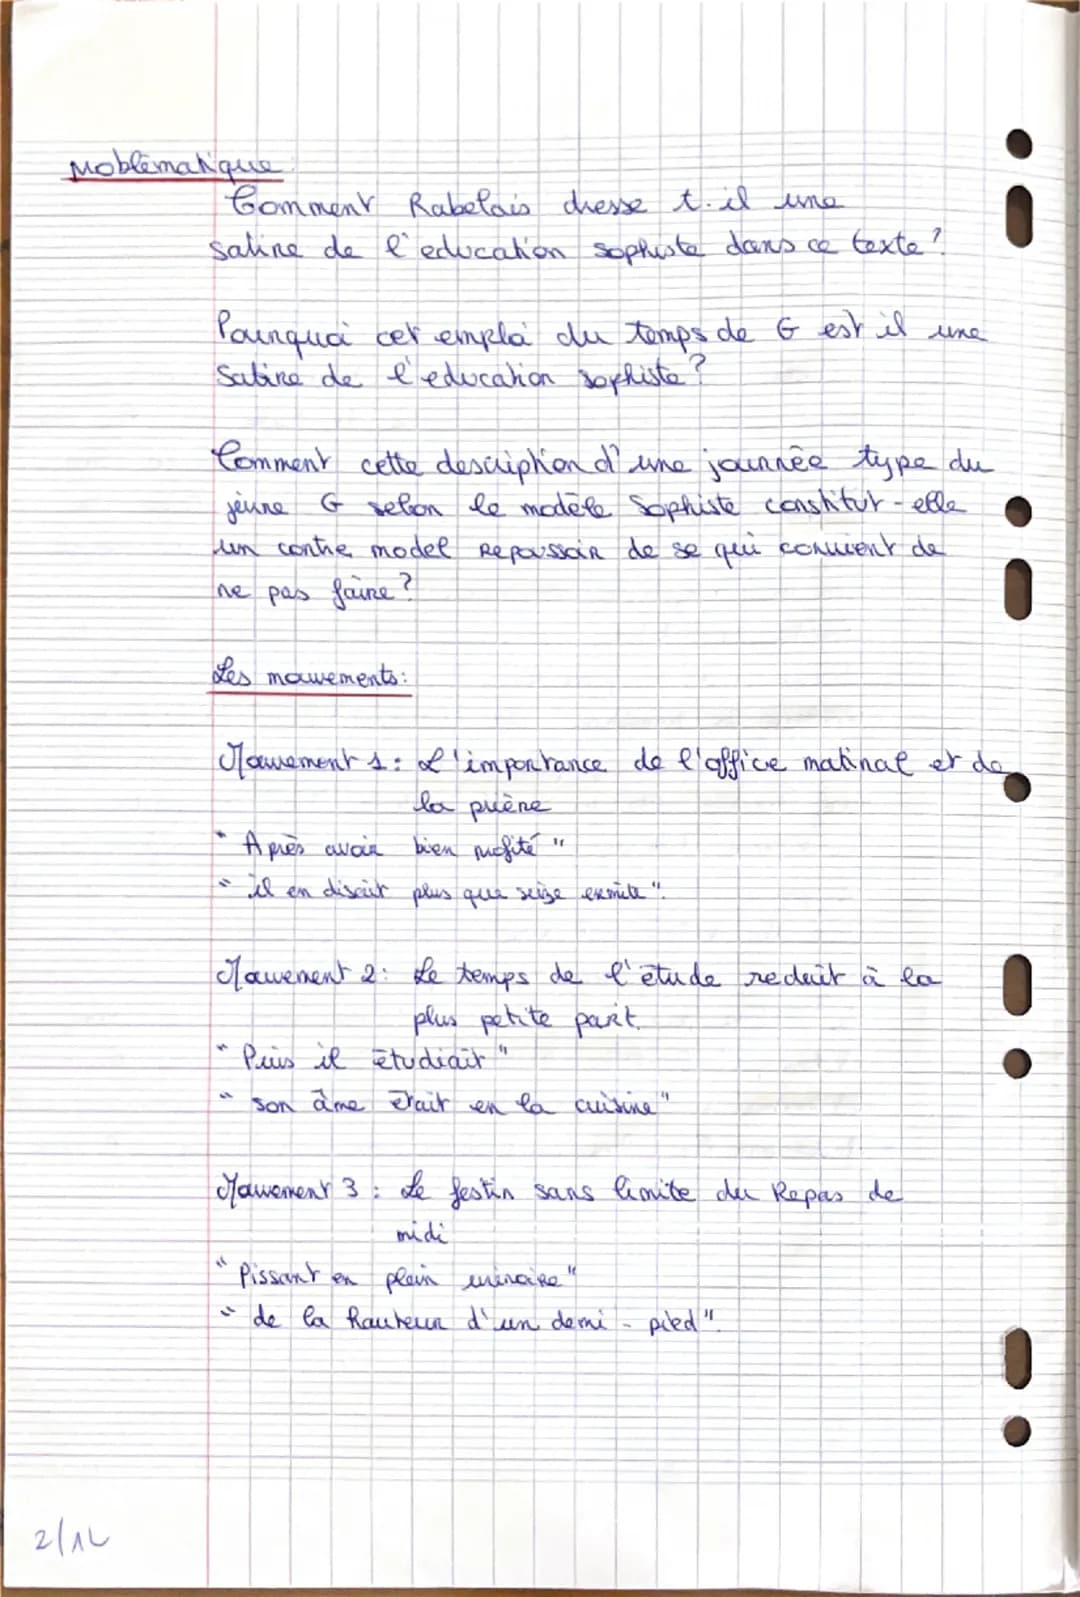 Problématique.
Comment Rabelais dresse t-il une
satire de l'education sophiste dans ce texte?
Pourquoi cet emploi du temps de G est il une
Satire de l'education sophiste?
Comment cette description d'une journée type du
jeune G selon le modèle Sophiste constitut-elle
un contre model Repoussoir de se qui convient de
ne pas faire?
Les mouvements:
Mouvement 1: L'importance de l'office matinal et de
la prière
" Après avoir bien profité "
" il en disait plus que seize ermite".
Mouvement 2: Le temps de l'étude reduit à la
plus petite part.
" Puis il étudiait "
" son âme était en la cuisine"
Mouvement 3 : Le festin sans limite du Repas de
midi
" Pissant en plein urinoire"
" de la hauteur d'un demi - pied".
2/12